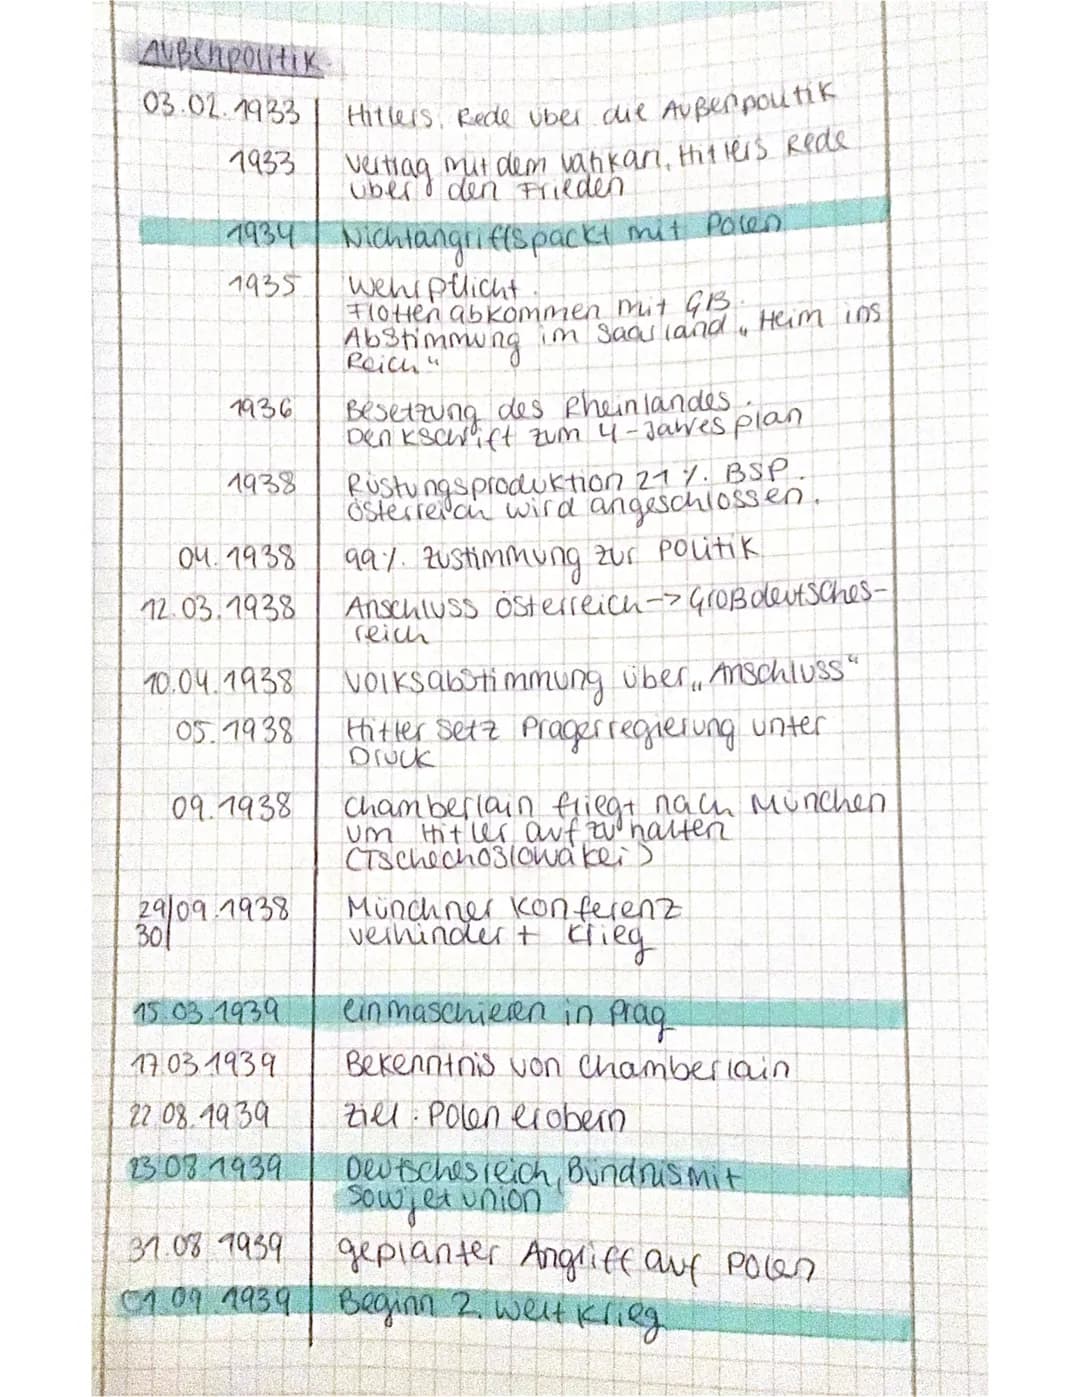 AUßenpolitik
03.02.1933 Hitlers, Rede über die Außenpolitik
1933 Vertrag mit dem Vatikan, Hitlers Rede
über den Frieden
1934 Nichtangriffspackt mit Polen
1935 Wehrpflicht.
Flottenabkommen mit GB.
Abstimmung im Saarland „Heim ins
Reich“
1936 Besetzung des Rheinlandes.
Denkschrift zum 4-Jahresplan
1938 Rüstungsproduktion 21 %. BSP.
Österreich wird angeschlossen.
04.1938 99%. Zustimmung zur Politik
12.03.1938 Anschluss Österreich-> Großdeutsches-
reich
10.04.1938 Volksabstimmung über „Anschluss“
05.1938 Hitler setz Pragerregierung unter
Druck
09.1938 Chamberlain fliegt nach München
um Hitler aufzuhalten
(Tschechoslowakei)
29/09.1938 Münchner Konferenz
30/ verhindert Krieg
15.03.1939 einmaschieren in Prag
17.03.1939 Bekenntnis von Chamberlain
22.08.1939 Ziel: Polen erobern
23.08.1939 Deutschesreich, Bündnis mit
Sowjetunion
31.08.1939 geplanter Angriff auf Polen
01.09.1939 Beginn 2. Weltkrieg